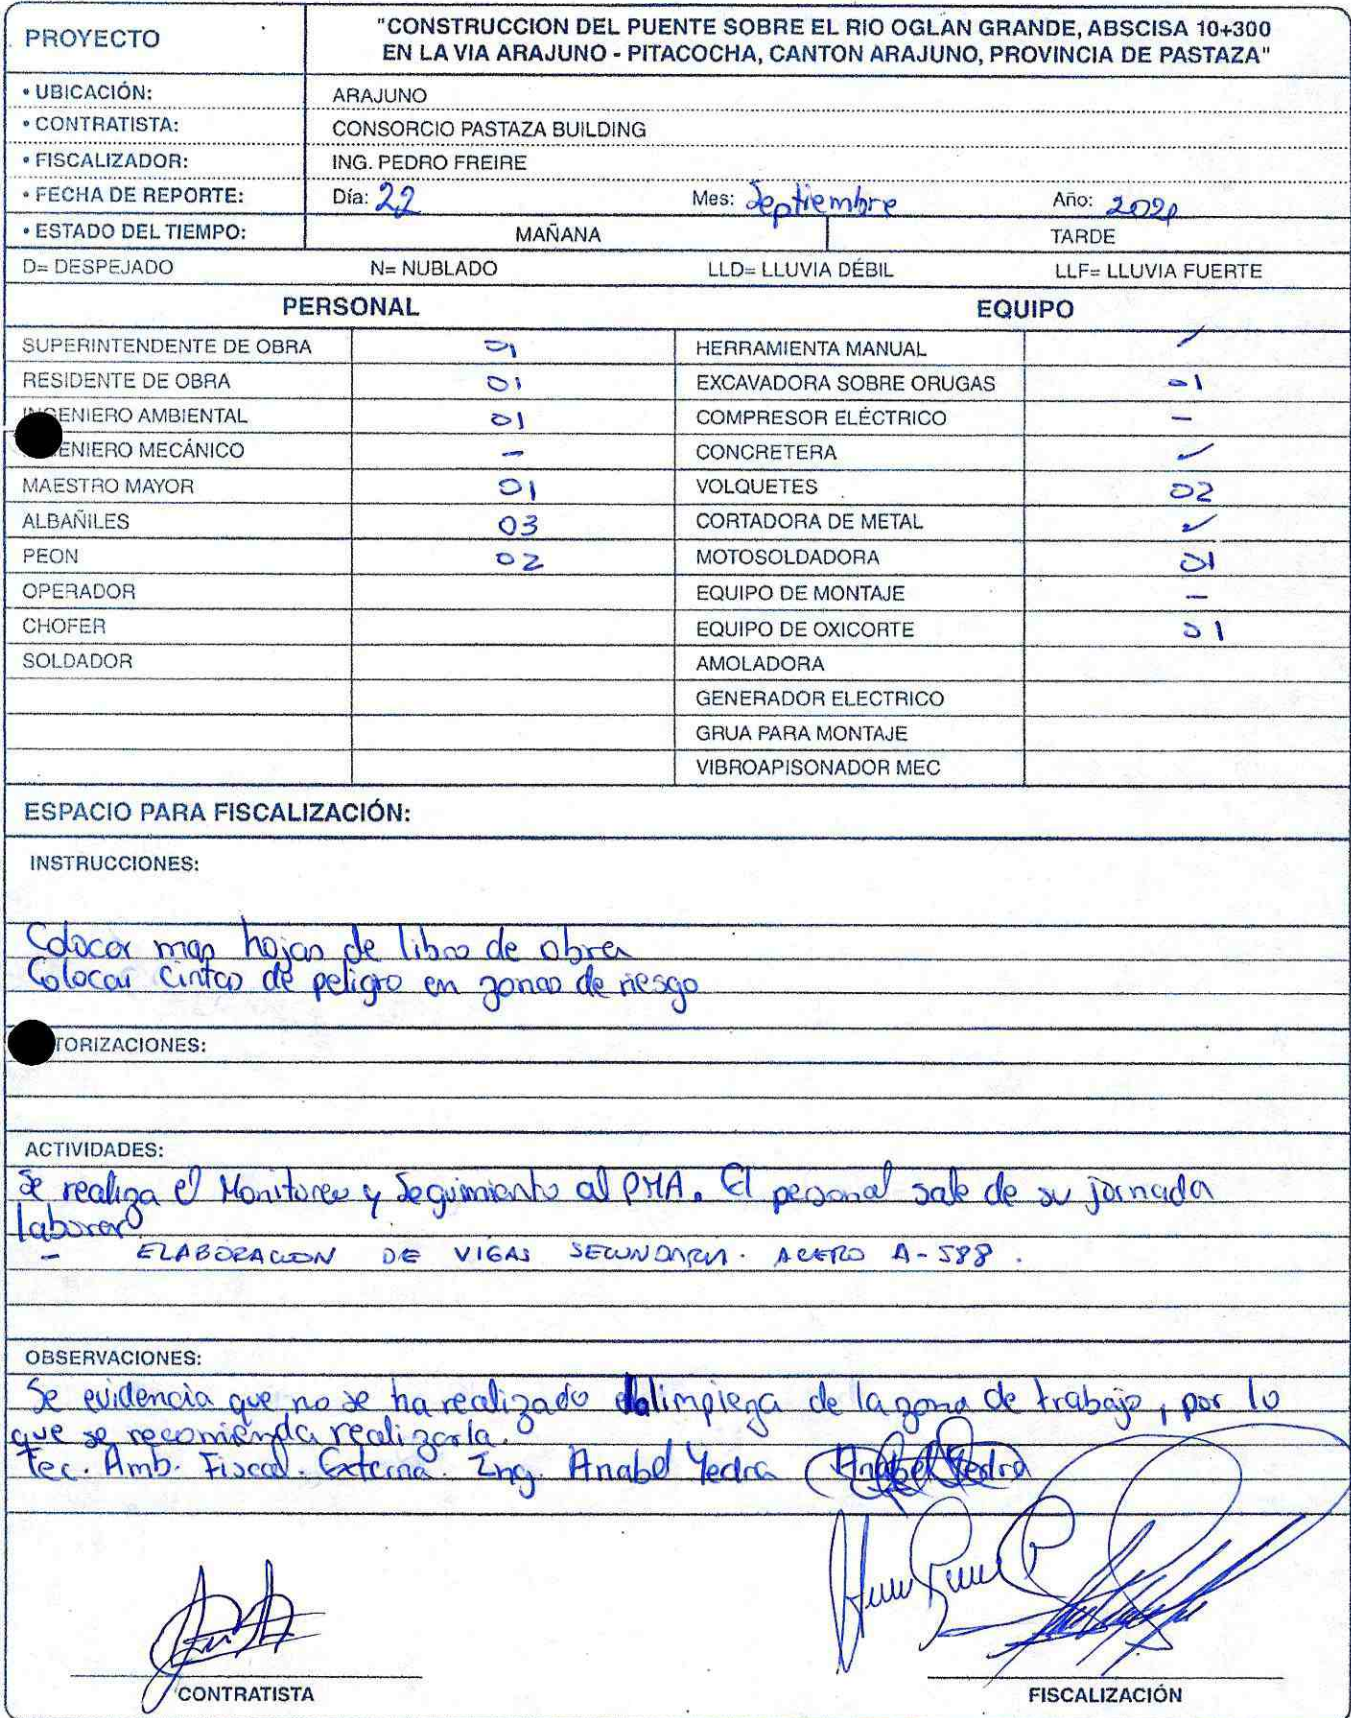 PROYECTO
"CONSTRUCCION DEL PUENTE SOBRE EL RIO OGLAN GRANDE, ABSCISA 10+300
EN LA VIA ARAJUNO - PITACOCHA, CANTON ARAJUNO, PROVINCIA DE PASTAZA"
• UBICACIÓN: ARAJUNO
• CONTRATISTA: CONSORCIO PASTAZA BUILDING
• FISCALIZADOR: ING. PEDRO FREIRE
• FECHA DE REPORTE: Día: 22 Mes: Septiembre Año:
• ESTADO DEL TIEMPO: MAÑANA TARDE
D= DESPEJADO N= NUBLADO LLD= LLUVIA DÉBIL LLF= LLUVIA FUERTE
PERSONAL EQUIPO
SUPERINTENDENTE DE OBRA 01 HERRAMIENTA MANUAL ✓
RESIDENTE DE OBRA 01 EXCAVADORA SOBRE ORUGAS 01
INGENIERO AMBIENTAL 01 COMPRESOR ELÉCTRICO -
ENIERO MECÁNICO - CONCRETERA ✓
MAESTRO MAYOR 01 VOLQUETES 02
ALBAÑILES 03 CORTADORA DE METAL ✓
PEON 02 MOTOSOLDADORA 01
OPERADOR EQUIPO DE MONTAJE -
CHOFER EQUIPO DE OXICORTE 01
SOLDADOR AMOLADORA
GENERADOR ELECTRICO
GRUA PARA MONTAJE
VIBROAPISONADOR MEC
ESPACIO PARA FISCALIZACIÓN:
INSTRUCCIONES:
Colocar mas hojas de libro de obra
Colocar cintas de peligro en zonas de riesgo
TORIZACIONES:
ACTIVIDADES:
Se realiza el Monitoreo y Seguimiento al PMA. El personal sale de su jornada
laboral
- ELABORACION DE VIGAS SECUNDARIA. ACERO A-588.
OBSERVACIONES:
Se evidencia que no se ha realizado la limpieza de la zona de trabajo, por lo
que se recomienda realizarla.
Tec. Amb. Fiscal. Externa. Ing. Anabel Yedra Anabel Yedra
CONTRATISTA FISCALIZACIÓN